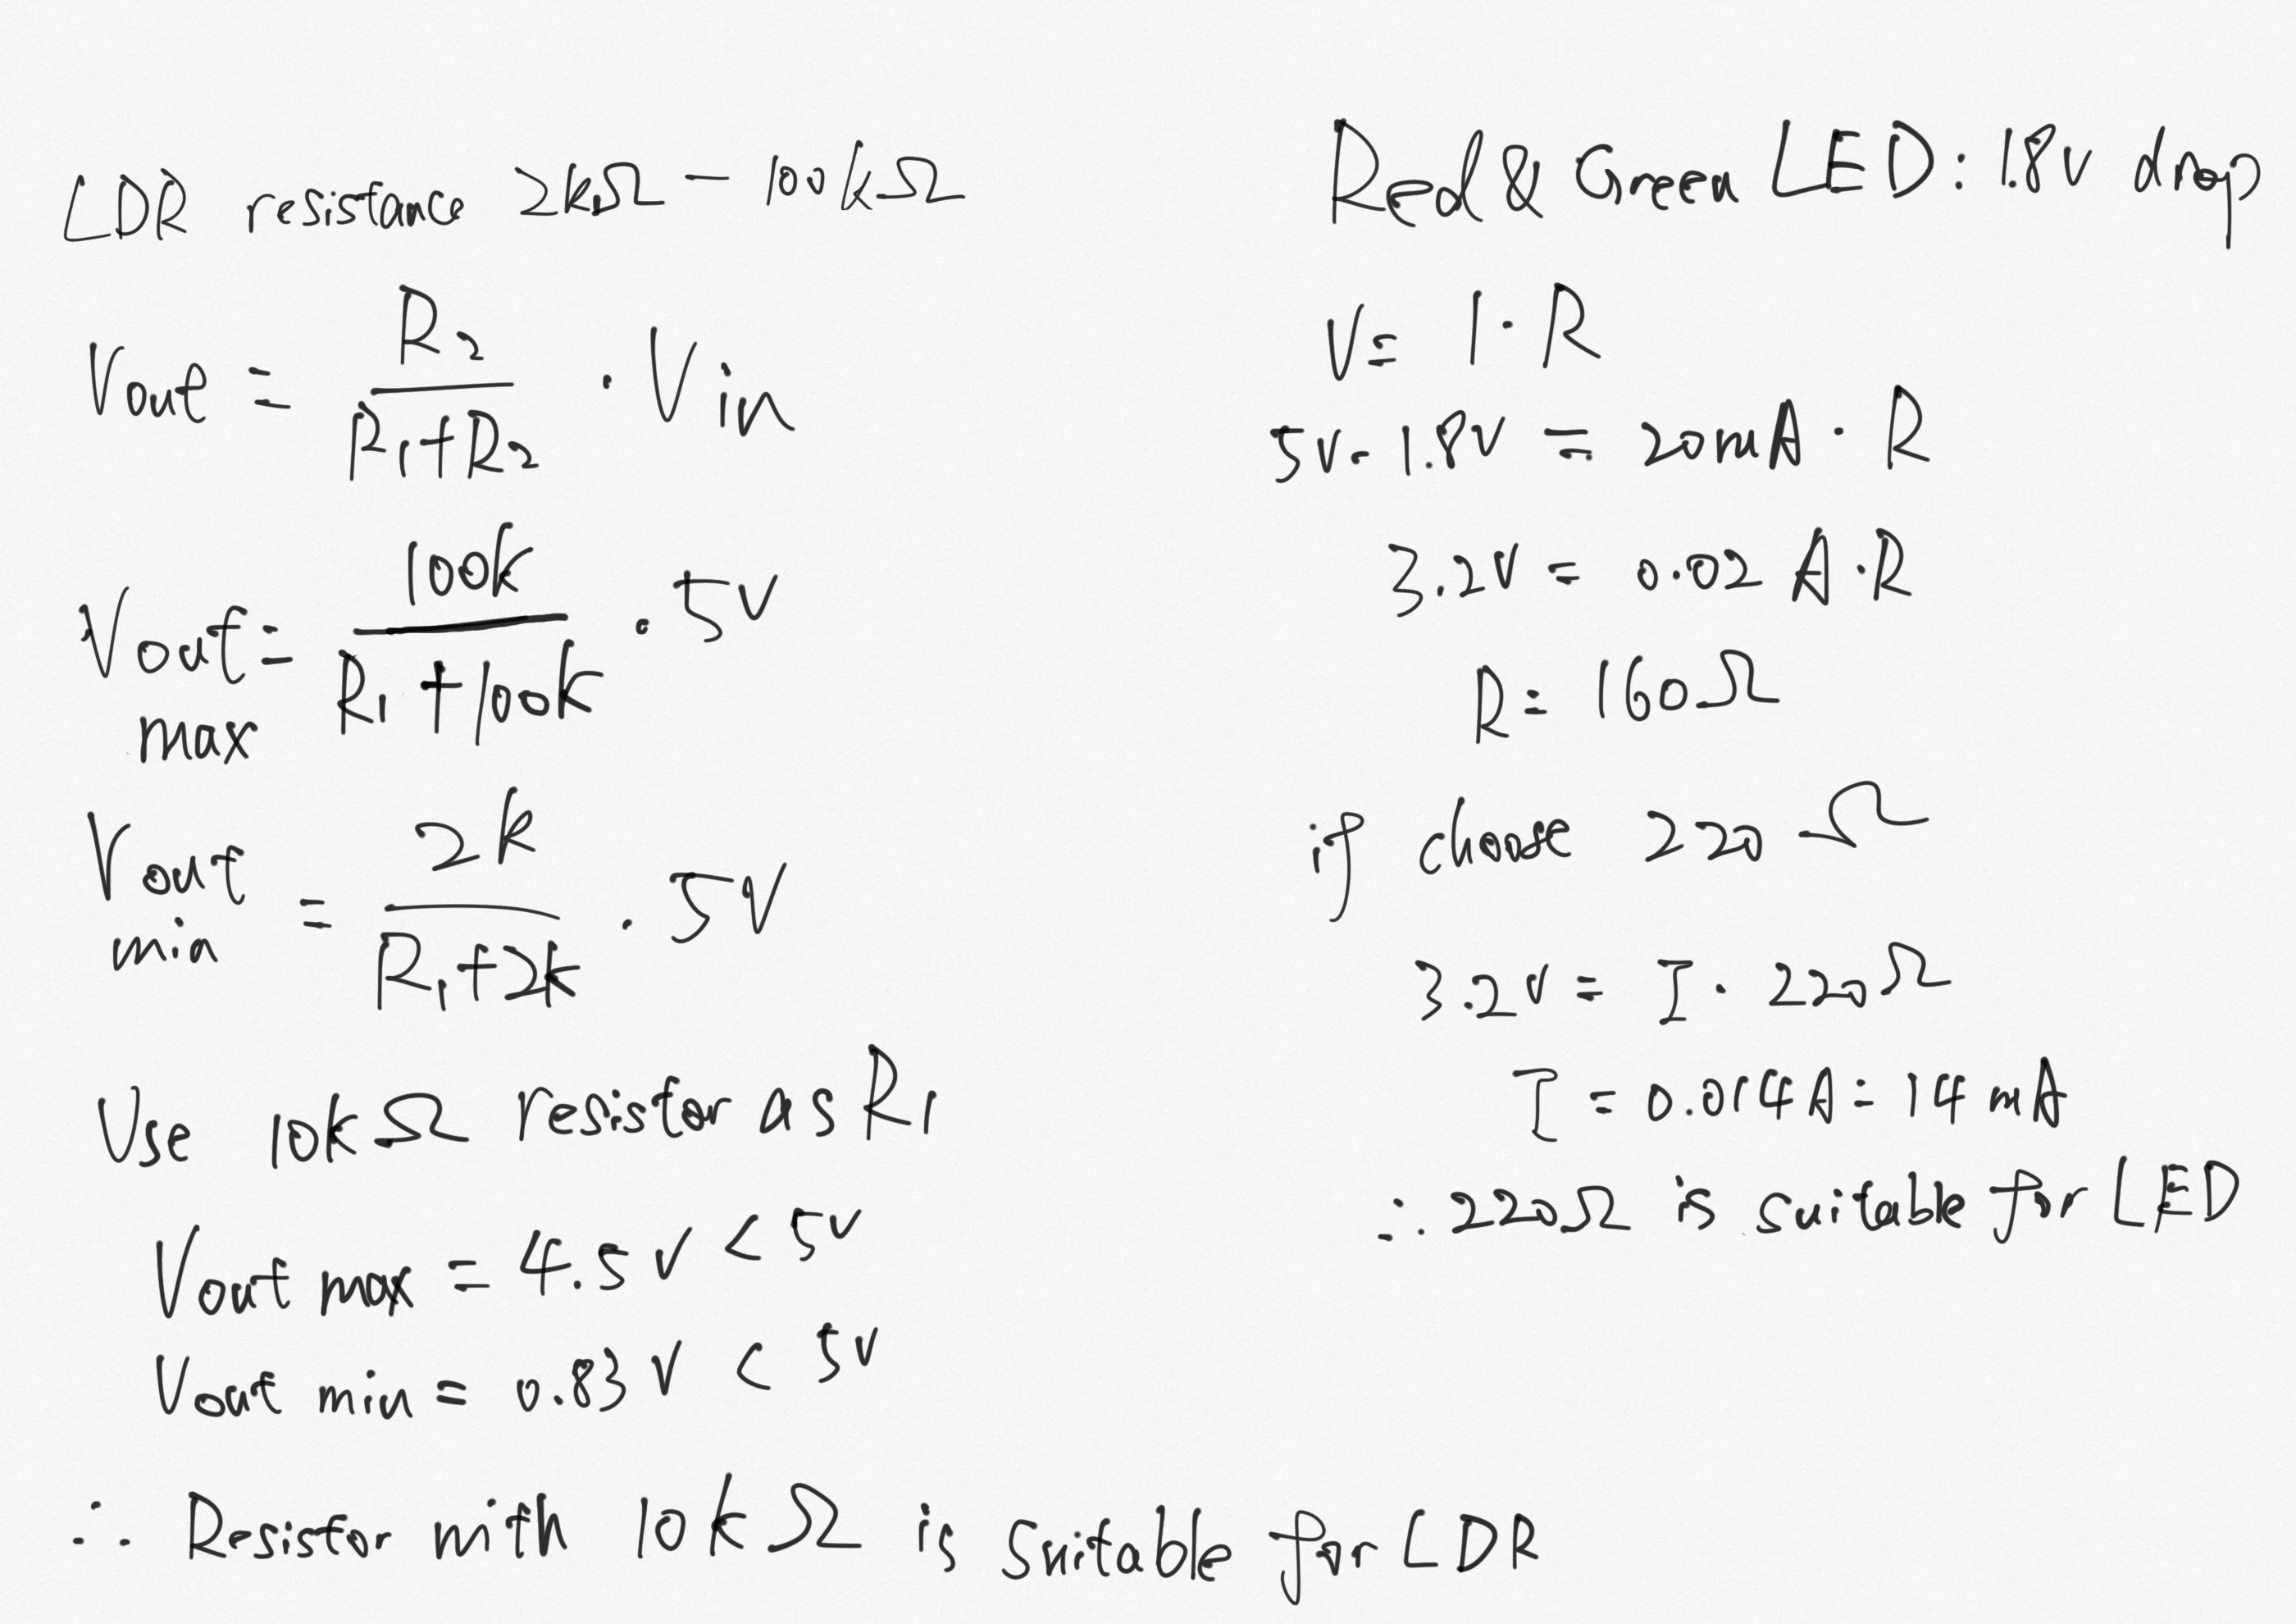 LDR resistance 2kΩ - 100kΩ
Vout = R2 / (R1+R2) · Vin
Vout max = 100k / (R1+100k) · 5V
Vout min = 2k / (R1+2k) · 5V
Use 10kΩ resistor as R1
Vout max = 4.5V < 5V
Vout min = 0.83V < 5V
∴ Resistor with 10kΩ is suitable for LDR
Red & Green LED: 1.8V drop
V = I · R
5V - 1.8V = 20mA · R
3.2V = 0.02A · R
R = 160Ω
if choose 220Ω
3.2V = I · 220Ω
I = 0.014A = 14mA
∴ 220Ω is suitable for LED